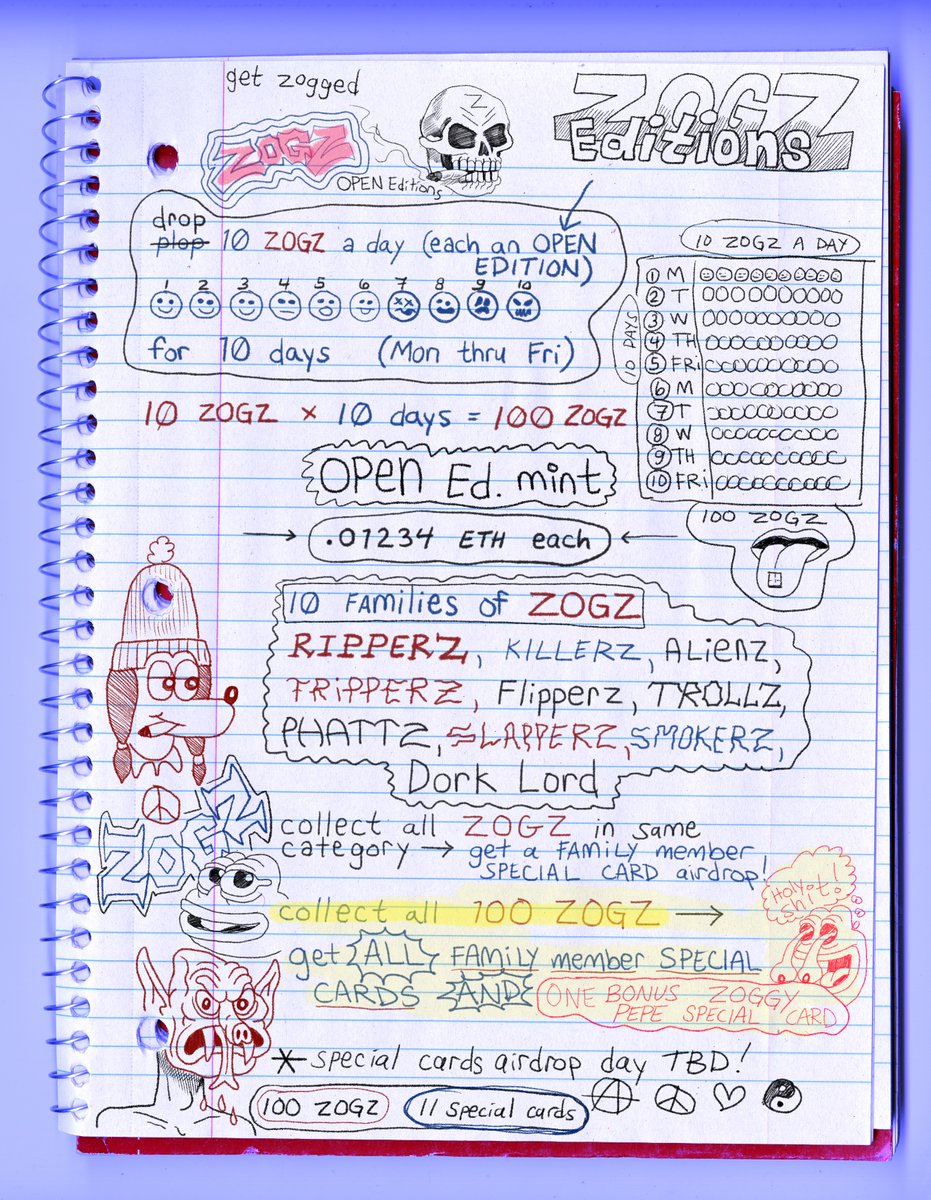 get zogged
ZOGZ
OPEN Editions
Z
ZOGZ
Editions
drop
plop 10 ZOGZ a day (each an OPEN
EDITION)
1 2 3 4 5 6 7 8 9 10
for 10 days (Mon thru Fri)
10 ZOGZ A DAY
10 DAYS
1 M
2 T
3 W
4 TH
5 FRi
6 M
7 T
8 W
9 TH
10 FRi
10 ZOGZ × 10 days = 100 ZOGZ
OPEN Ed. mint
.01234 ETH each
100 ZOGZ
10 FAMilies of ZOGZ
RIPPERZ, KILLERZ, ALienZ,
TRiPPERZ, Flipperz, TROLLZ,
PHATTZ, SLAPPERZ, SMOKERZ,
Dork Lord
ZOGZ
collect all ZOGZ in same
category → get a FAMILY member
SPECIAL CARD airdrop!
collect all 100 ZOGZ →
get ALL FAMiLY member SPECIAL
CARDS AND ONE BONUS ZOGGY
PEPE SPECIAL CARD
Holy
sh!t!
* special cards airdrop day TBD!
100 ZOGZ 11 special cards